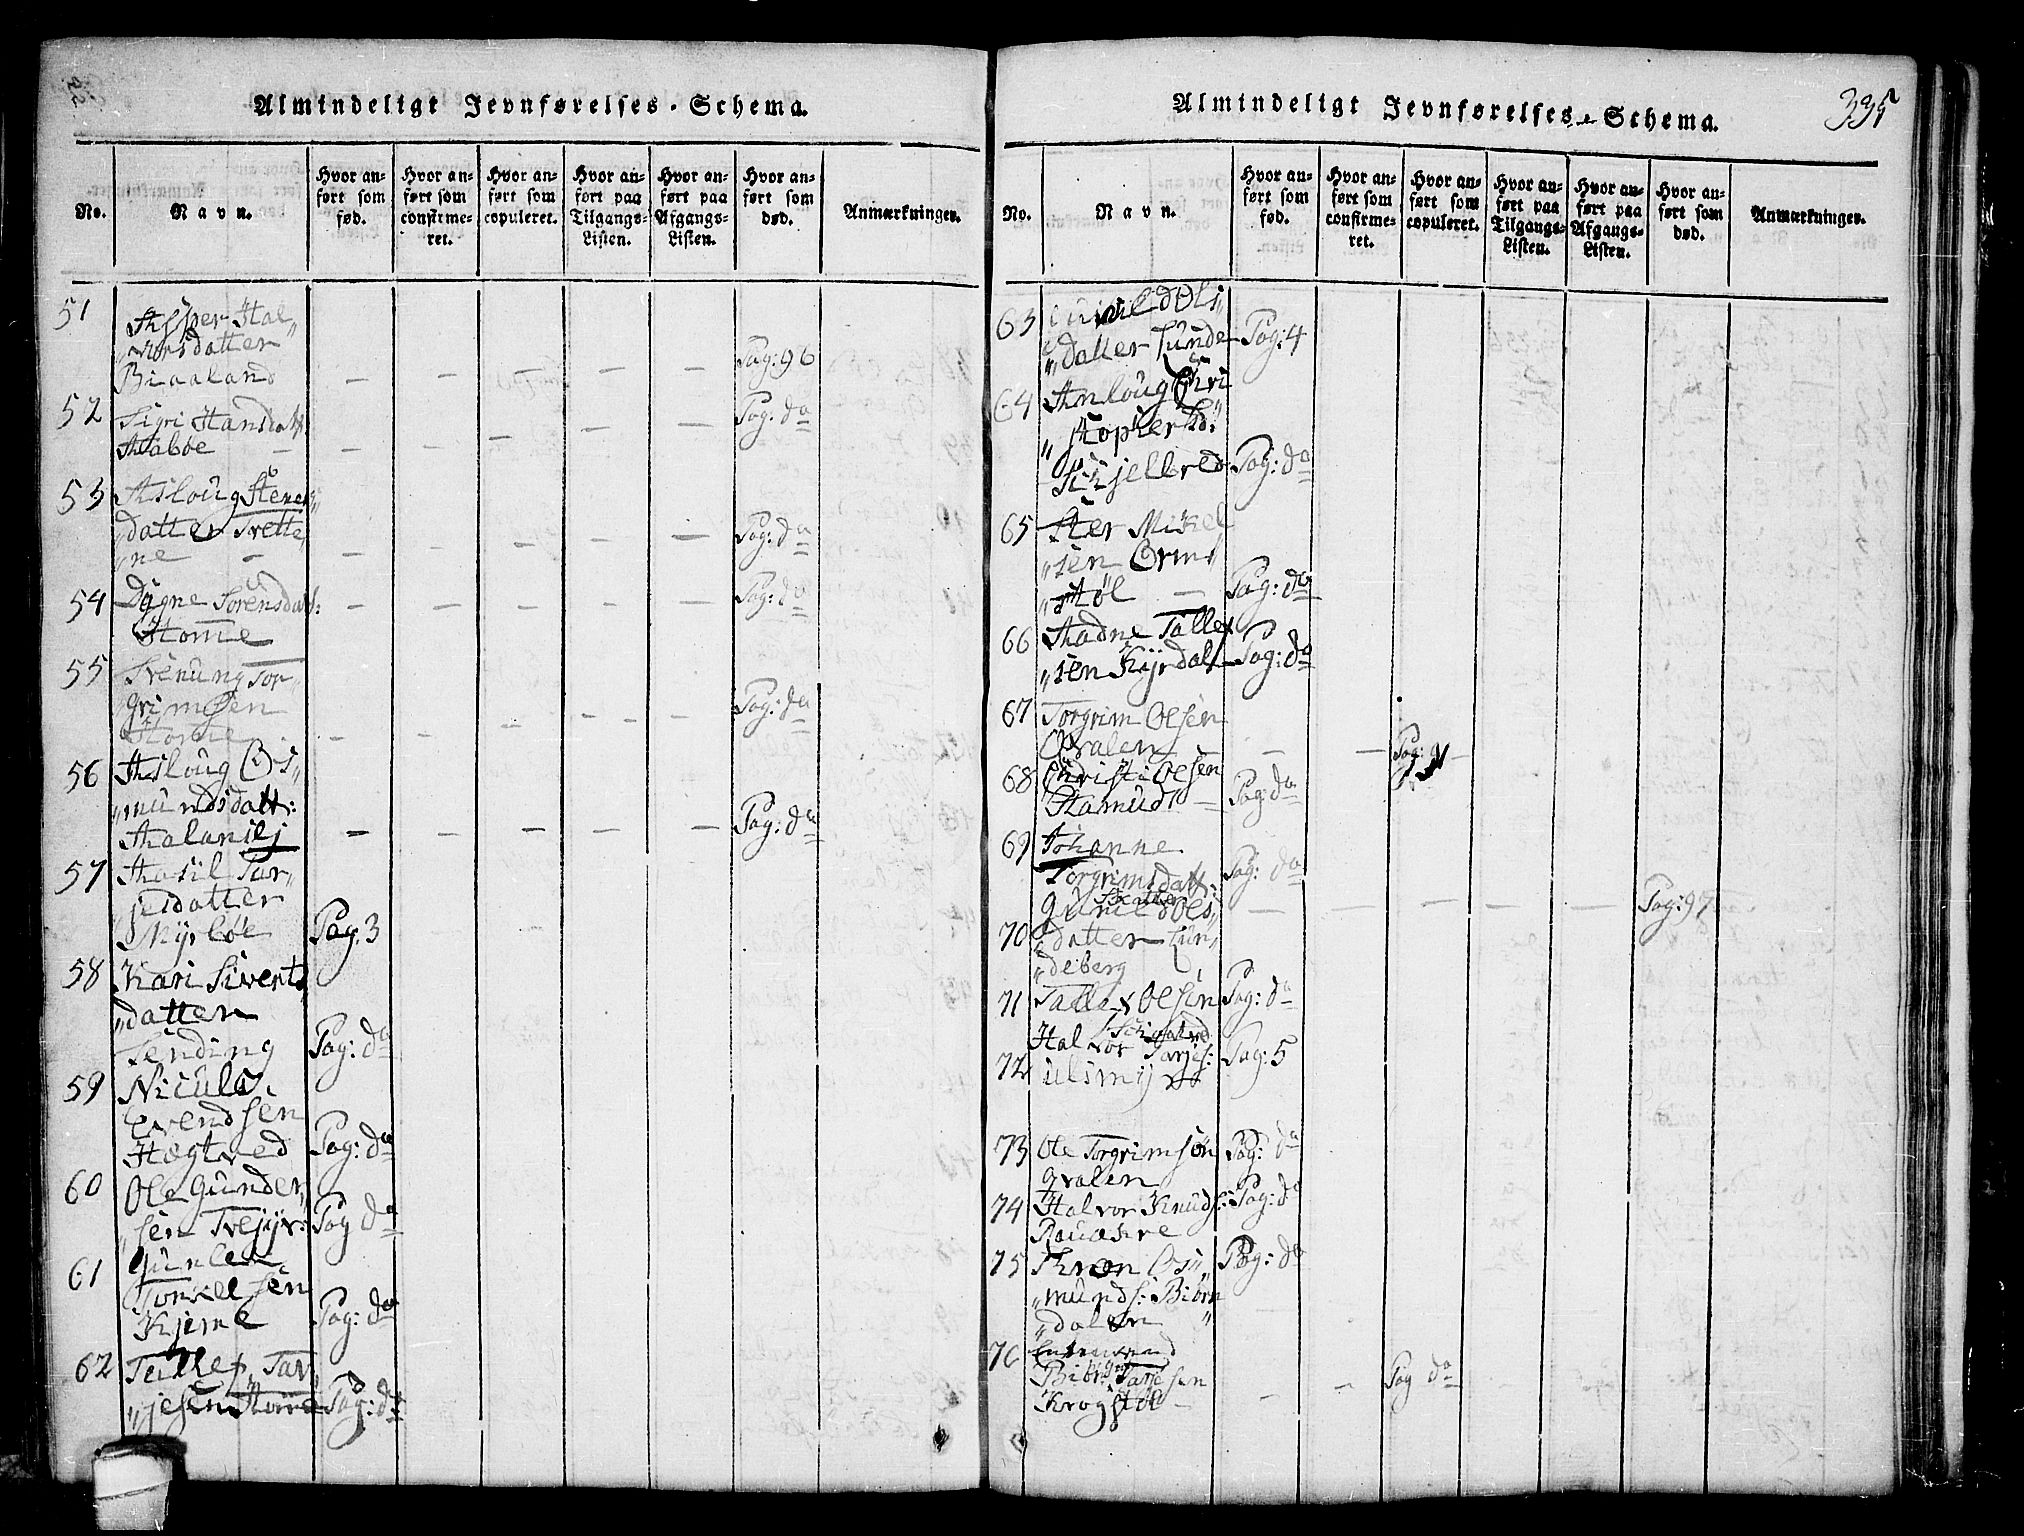 Almindeligt Jevnførelses-Schema.
No.
Navn.
Hvor anført som fød.
Hvor anført som confirmeret.
Hvor anført som copuleret.
Hvor anført paa Tilgangs-Listen.
Hvor anført paa Afgangs-Listen.
Hvor anført som død.
Anmærkninger.
51
Hal„
„vorsdatter
Biaaland — — — — — Pag: 96
52 Sigri Hansdatt:
Aabøe — — — — — — Pag: do
53 Asloug Stener„
„datter Tvette„
„ne — — — — — — Pag: do
54 Dygne Sorensdatt: — — — — — Pag: do
Homme
55 Svenung Tor„
„grimsen
Homme — — — — — — Pag: do
56 Asloug Os„
„mundsdatt: — — — — — Pag: do
57 Aasil Tar„
„jesdatter
Myrløe Pag. 3
58 Kari Siverts
„datter
Tending Pag: do
59 Niculs
Evendsen
Hægtved Pag: do
60 Ole Gunder„
„sen Pag do
61 Gunlen
Torkelsen
Kjerne Pag: do
62 Tellef Tar„
„jesen Pag: do
Almindeligt Jevnførelses-Schema.
395
No.
Navn.
Hvor anført som fød.
Hvor anført som confirmeret.
Hvor anført som copuleret.
Hvor anført paa Tilgangs-Listen.
Hvor anført paa Afgangs-Listen.
Hvor anført som død.
Anmærkninger.
63 Gunild Ols„
„datter Lunde Pag: 4
64 Anloug Chri
„stopherd:
Skjelbred Pag: do
65 Mikel
„sen Orm„
„støl — Pag: do
66 Aadne Tallef
„sen Kyrdal Pag: do
67 Torgrim Olsen
Qvalen — — Pag: —
68 Christi Olsen
Hamud — Pag: do
69 Johanne
Torgrimsdatt: Pag: do
Gunild Ols„ — — — — — Pag: 97
70 „datter Lun„
„deberg
71 Tallef Olsen Pag: do
72 Halvor Tarjes: Pag: 5
Ulsmyr
73 Ole Torgrimsøn Pag: do
Qvalen
74 Halvor Knuds: Pag: do
Rauakre
75 Os„ Pag: do
„munds: Biørn
„dalen „
76
Tarjesen
Krogstøl — — — Pag do